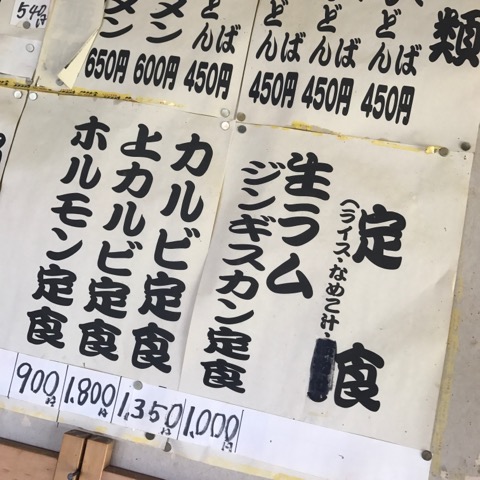 類
うどんば
450円
うどんば
450円
どんば
450円
どんば
450円
メン
600円
メン
650円
540円
定食
(ライス・なめこ汁・
生ラム
ジンギスカン定食
1,000円
カルビ定食
1,350円
上カルビ定食
1,800円
ホルモン定食
900円